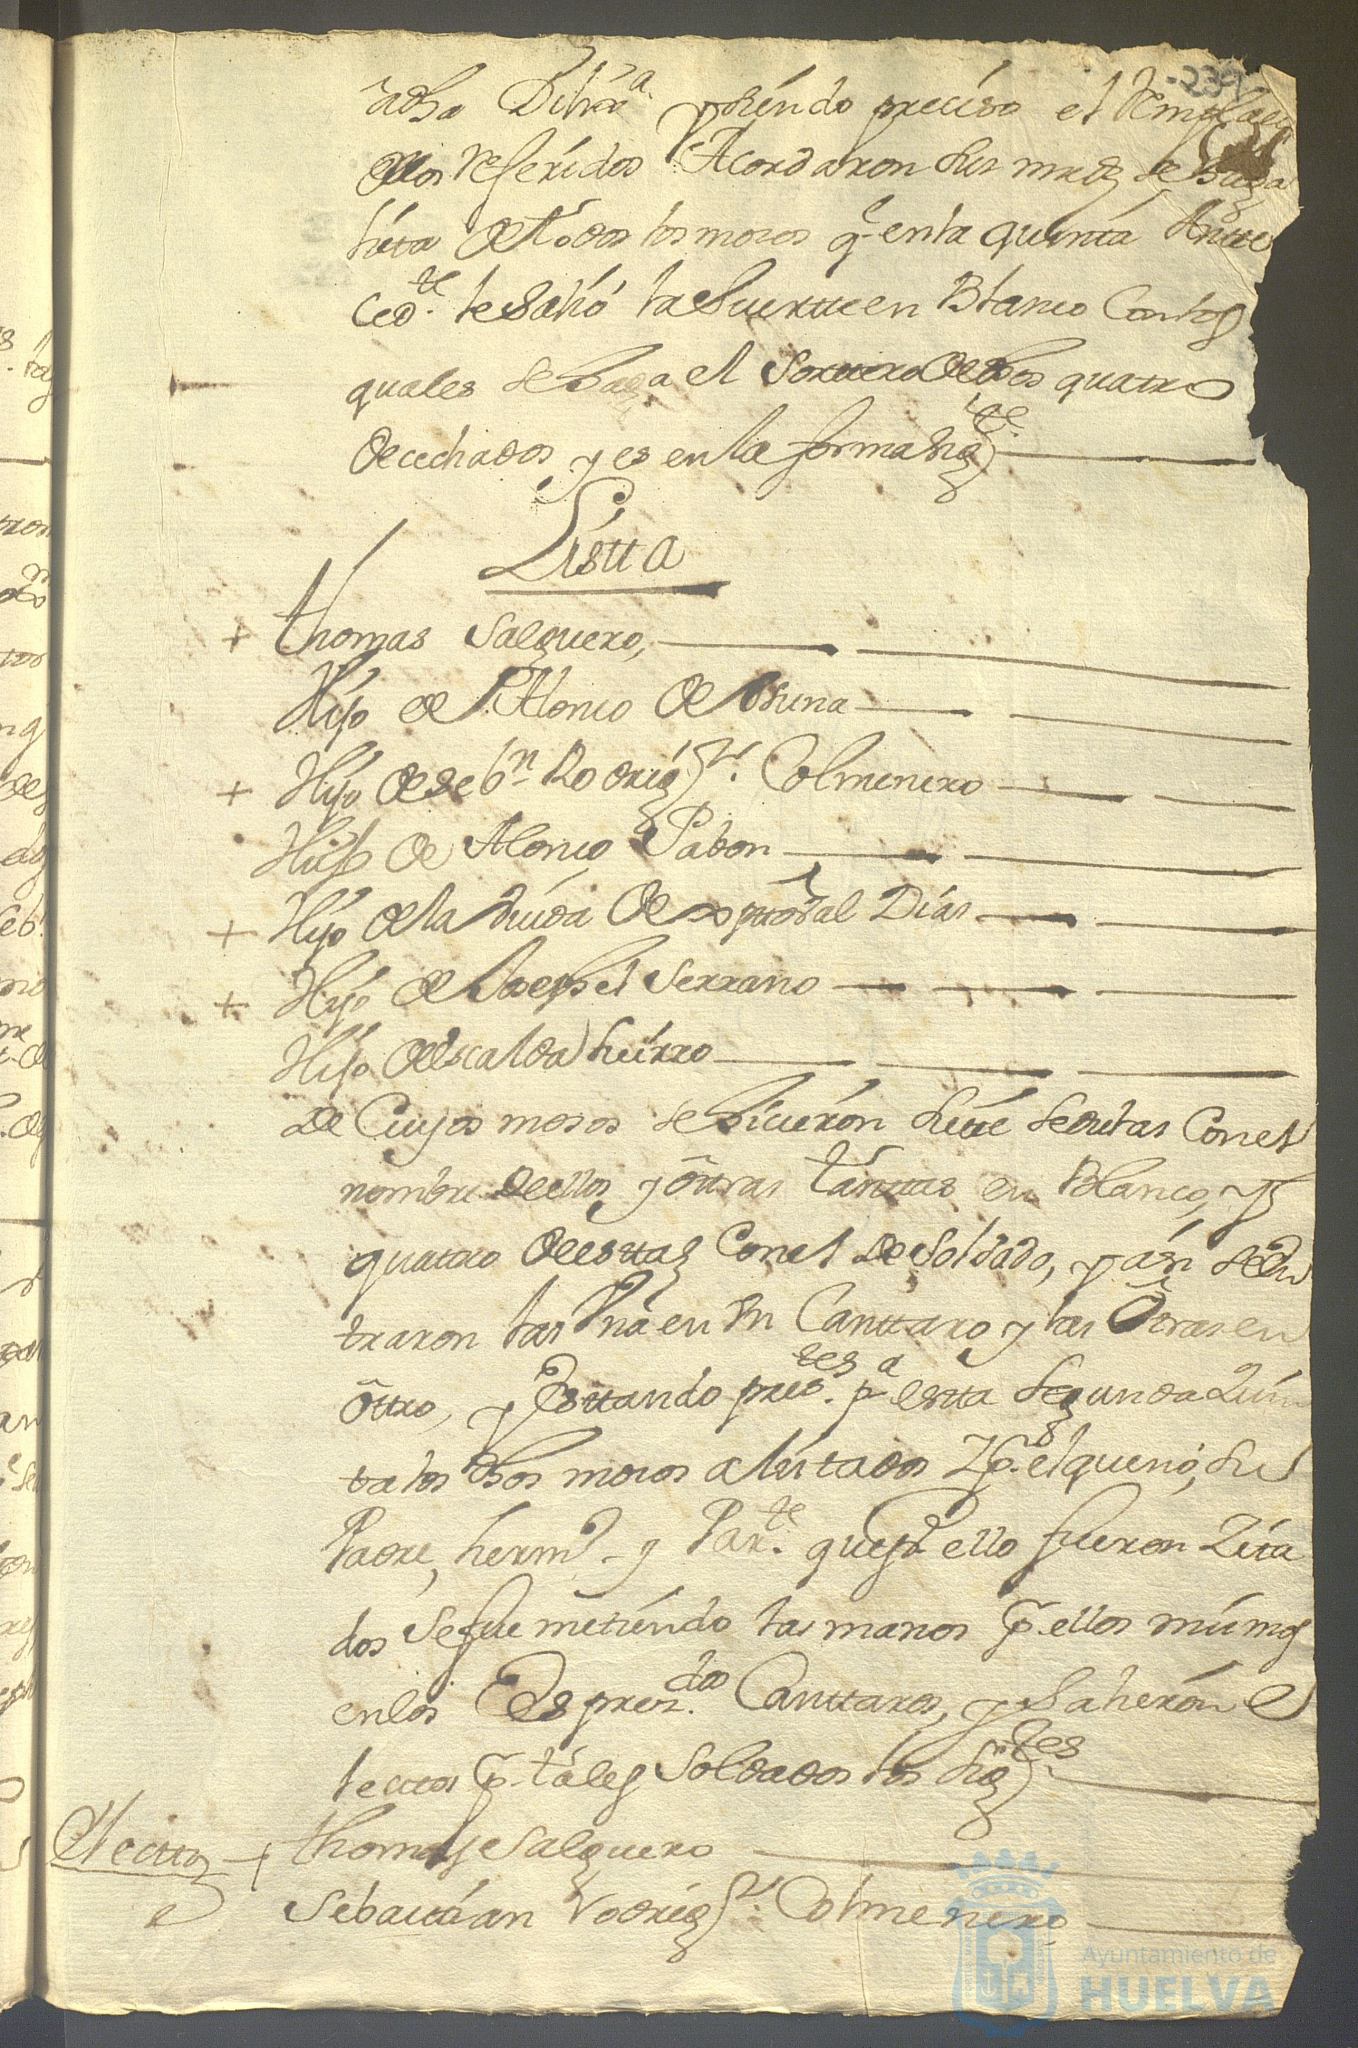 239
adha Dilixa. y siendo preciso el Remplazo
de los Referidos Acordaron sus mrds se haga
lista de todos los mosos q. en la quinta Antte
ced.te le salió la suertte en Blanco Con los
quales se haga el Sorteo de dhos quatro
decechados y es en la forma sig.te
Listta
+ Thomas Salguero,
Hijo de Alonso de Osuna
+ Hijo de Seb.n Rodrig.z Colmenero
Hijo de Alonso Pabon
+ Hijo de la Viuda de Xptobal Dias
+ Hijo de Joseph el Serrano
Hijo de Escalda huirro
De Cuyos mosos se hicieron siete sedulas Con el
nombre de ellos y otras tanttas en Blanco, y
quattro de esttas Con el de Soldado, y asi se en
traron las Vna en Vn Canttaro y las Otras en
ôttro, y Esttando pres.tes p.a estta Segunda Quin
ta los dhos mosos alistados Y p.r el que no, su
Padre, herm.o y Par.te que p.a ello fueron Zita
dos se fue metiendo las manos p.r ellos mismos
en los Espres.dos Canttaros, y salieron e
lecttos p.r tales Soldados los sig.tes
Electtos + Thomas Salguero
Sebasttian Rodrig.z Colmenero
Ayuntamiento de
HUELVA